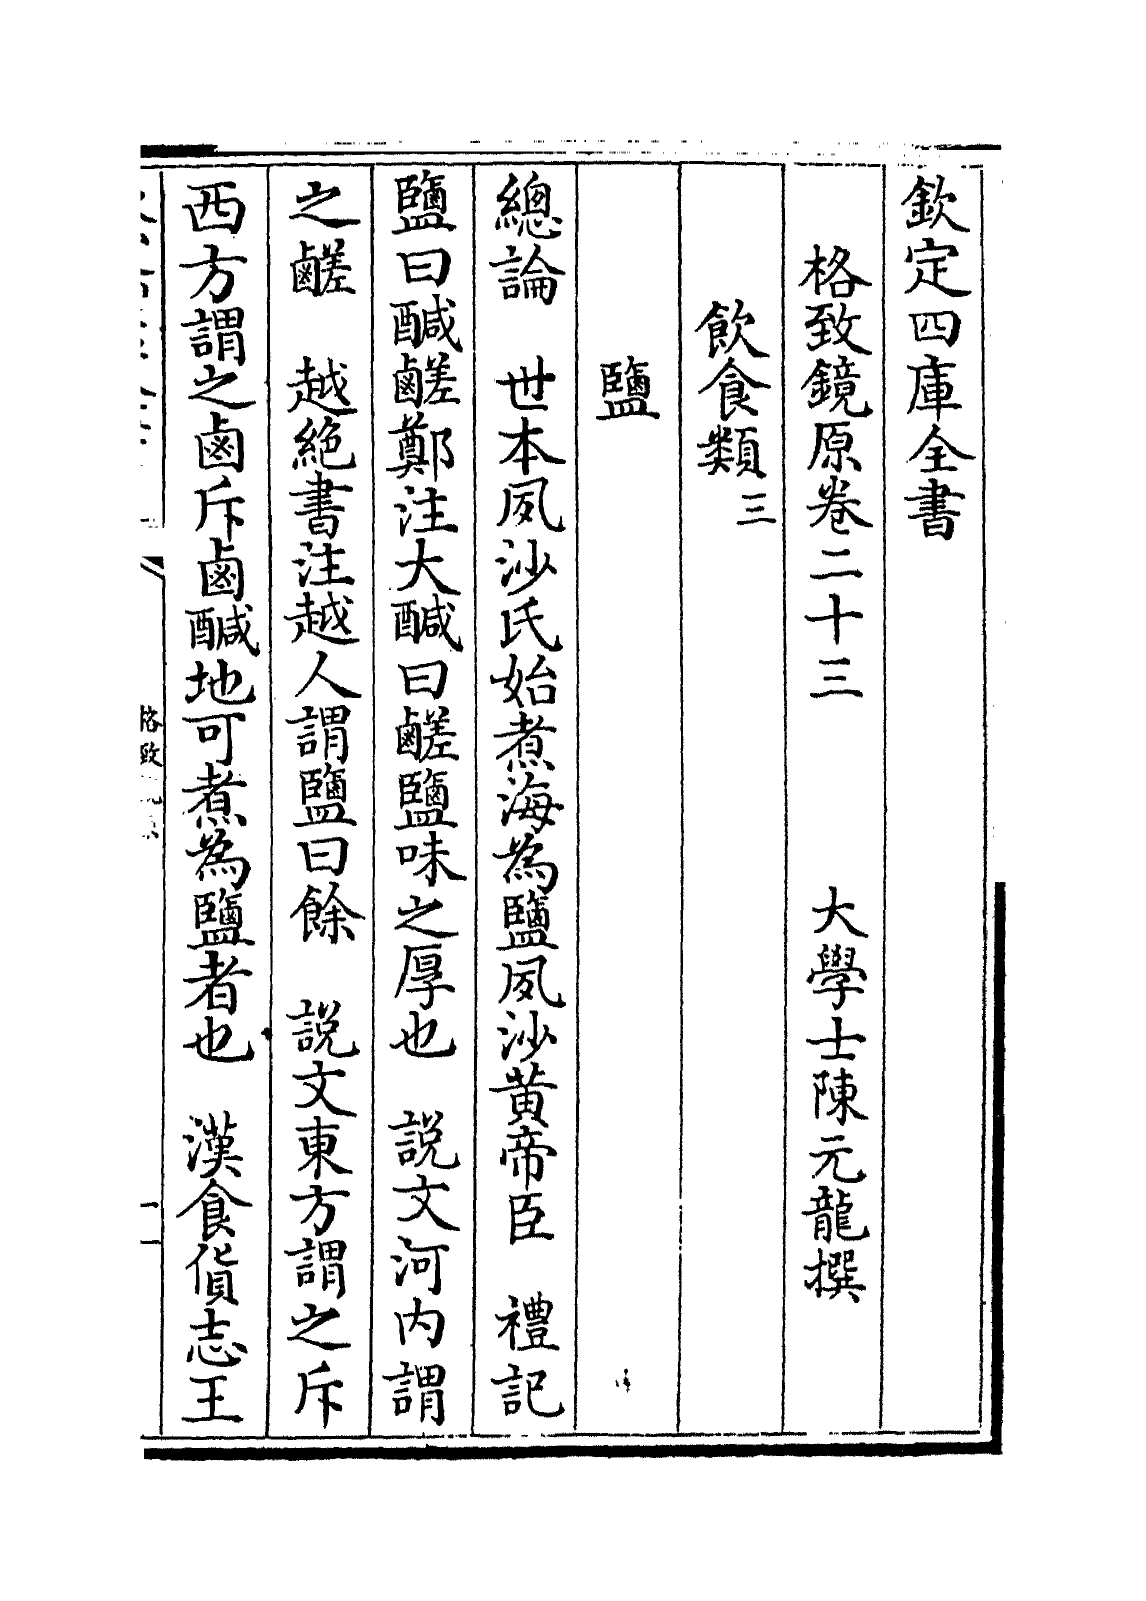 欽定四庫全書
格致鏡原卷二十三 大學士陳元龍撰
飲食類三
鹽
總論 世本夙沙氏始煮海為鹽夙沙黄帝臣 禮記
鹽曰醎鹺鄭注大醎曰鹺鹽味之厚也 説文河内謂
之鹺 越絶書注越人謂鹽曰餘 説文東方謂之斥
西方謂之鹵斥鹵醎地可煮為鹽者也 漢食貨志王
格致